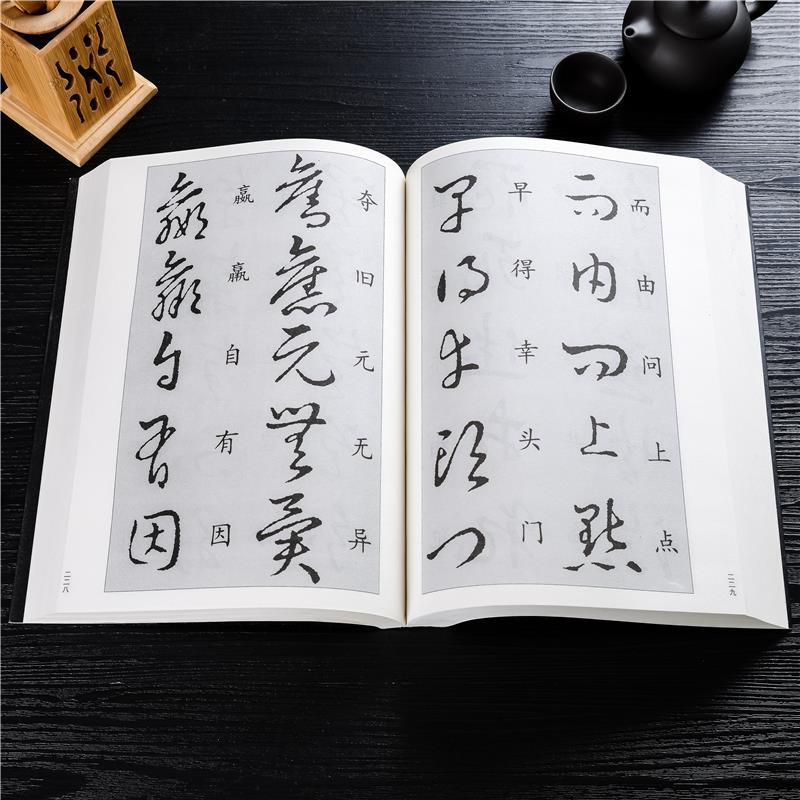 奪舊元無異
夺旧元无异
嬴羸自有因
嬴羸自有因
二二八
而由問上點
而由问上点
早得幸頭門
早得幸头门
二二九